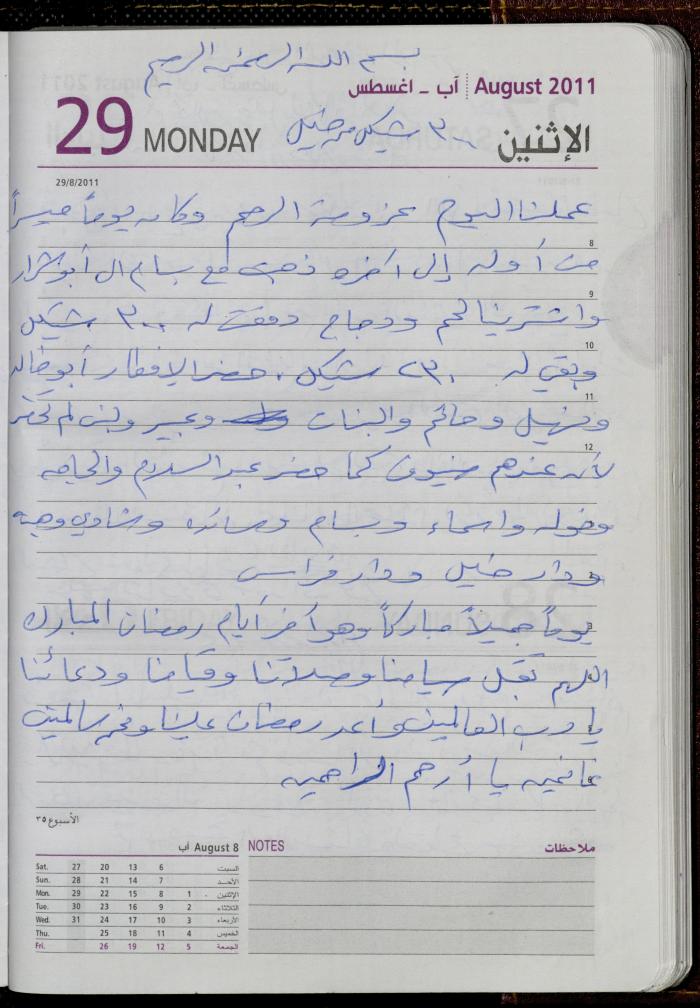 بسم الله الرحمن الرحيم
آب - اغسطس August 2011
29 MONDAY ٣٠٠ شيكل من خليل الإثنين
29/8/2011
عملنا اليوم عزومة الرحم وكان يوماً ميسراً
8
من أوله إلى آخره ذهبت مع بسام ال أبو شرار
9
واشترينا لحم ودجاج دفعت له ٣٠٠ شيكل
10
وبقي له ٢٣٠ شيكل . حضر الإفطار أبو خالد
11
ونهيل وحاتم والبنات وعبير ولبنى لم تحضر
12
لأنه عندهم ضيوف كما حضر عبد السلام والحاجه
وخوله واسماء وبسام وسائده وشادي وهبه
ودار خليل ودار فراس
يوماً جميلاً مباركاً وهو آخر أيام رمضان المبارك
اللهم تقبل صيامنا وصلاتنا وقيامنا ودعائنا
يا رب العالمين وأعد رمضان علينا ونحن سالمين
غانمين يا أرحم الراحمين
الأسبوع ٣٥
August 8 آب
Sat. 27 20 13 6 السبت
Sun. 28 21 14 7 الأحد
Mon. 29 22 15 8 1 الإثنين
Tue. 30 23 16 9 2 الثلاثاء
Wed. 31 24 17 10 3 الأربعاء
Thu. 25 18 11 4 الخميس
Fri. 26 19 12 5 الجمعة
NOTES ملاحظات